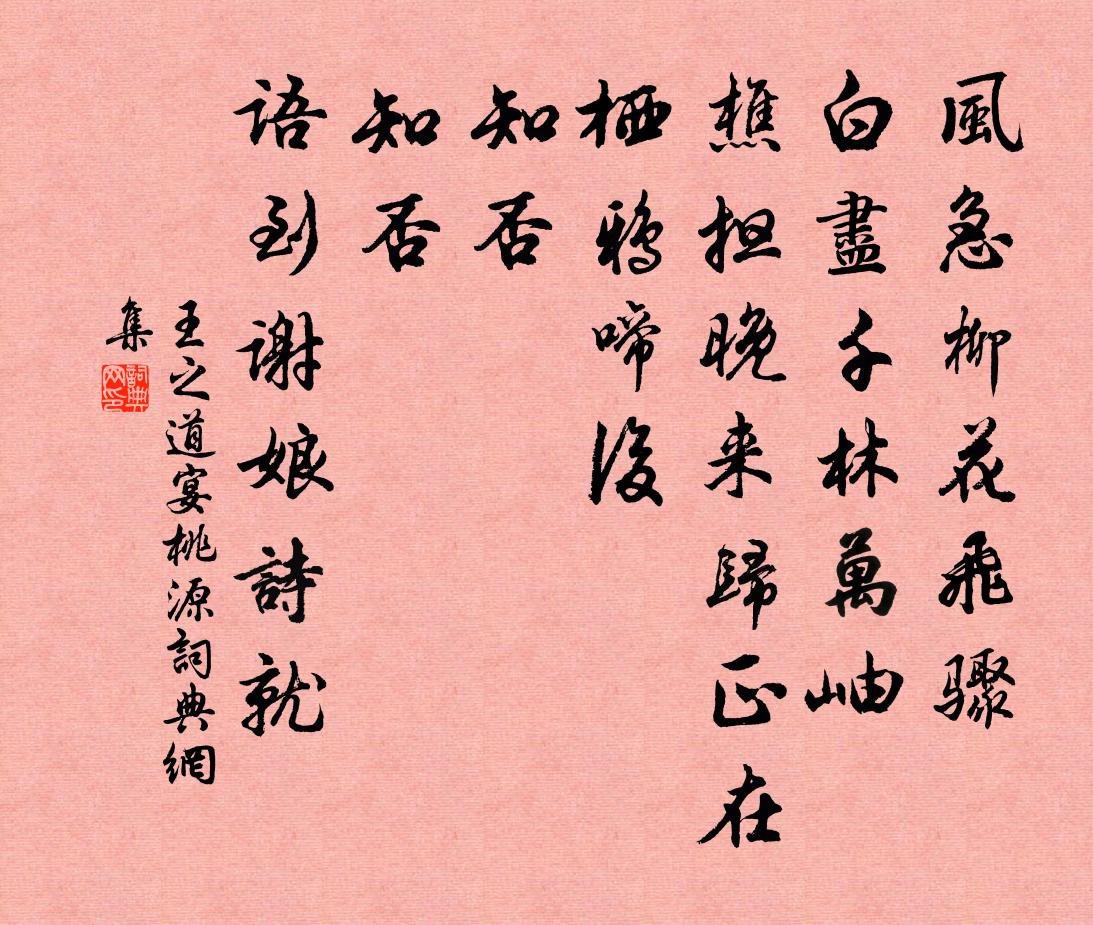 風急柳花飛驟
白盡千林萬岫
樵担晚来歸正在
栖鴉啼後
知否
知否
語到謝娘詩就
王之道宴桃源詞典網
集
詞典網印